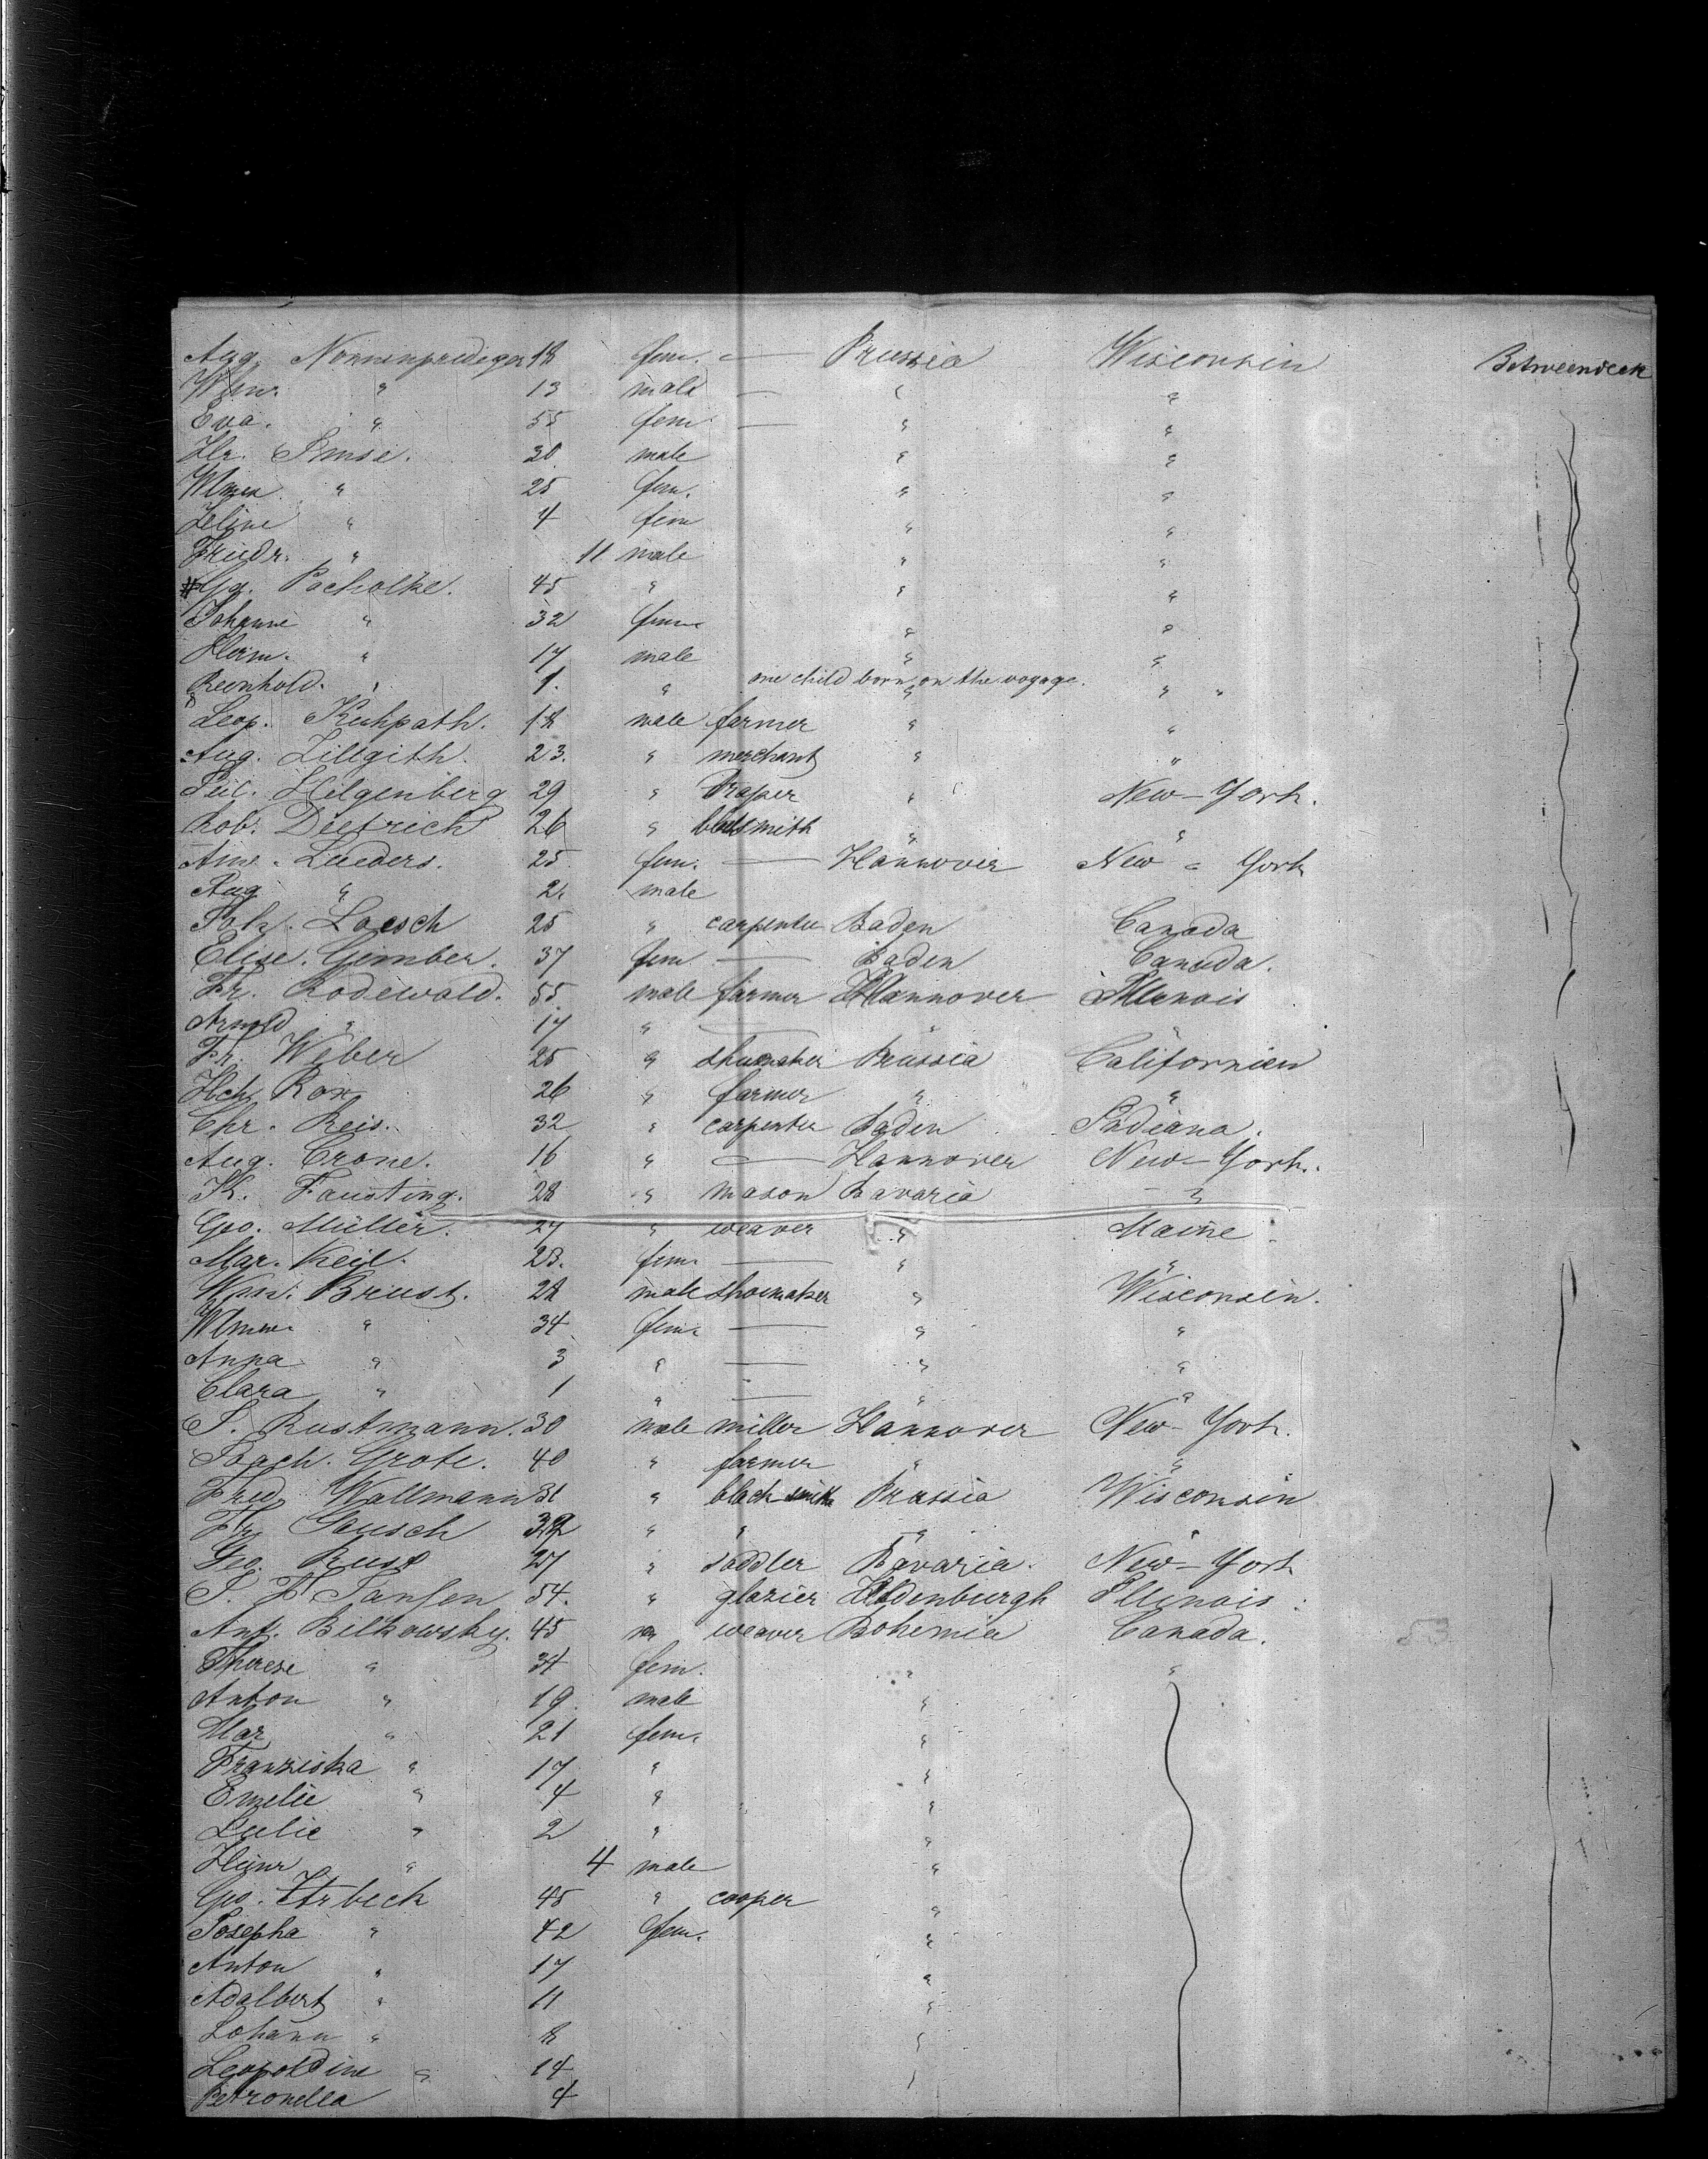 Aug. Nonnenprediger 18 fem. — Prussia Wisconsin Betweendeck
Wm. " 13 male — " "
Eva. " 55 fem. — " "
Hr. Imse. 30 male " "
Wlmea " 25 fem. " "
Zeline " 4 fem " "
Friedr. " 11 male " "
Gg. Pacholke. 45 " " "
Johanne " 32 fem. " "
Herm. " 17 male " "
Reinhold. " 1. " one child born on the voyage. " " "
Leop. Kuhpath. 18 male farmer " "
Aug. Zillgith. 23. " merchant " "
Hilgenberg 29 " Draper " New-York.
Rob. Dietrich 26 " " "
Lueders. 25. fem. — Hannover New - York
Aug " 2. male
Joh. Loesch 25 " carpenter Baden Canada
Elise. Gimber. 37 fem — Baden Canada.
Fr. Rodewald. 55. male farmer Hannover Illinois
Arnold " 17 " — " "
Fr. Weber 25 " shumaker Prussia Californien
Hch. Rox 26 " farmer " "
Chr. Reis. 32 " carpenter Baden Indiana.
Aug. Crone. 16 " — Hannover New-York.
K. Fausting. 28 " mason Bavaria - "
Geo. Müller. 27 " weaver " Maine
Mar. Keil. 23. fem. — " "
Wm. Brust. 28 male shoemaker " Wisconsin.
Wlmine. " 34 fem. — " "
Anna " 3 " — " "
Clara " 1 " — " "
J. Rustmann. 30 male miller Hannover New-York.
Joach. Grote. 40 " farmer " "
Fried. Wallmann 31 " black smith Prussia Wisconsin
Fr. Gausch 32 " " " "
Geo. Rust 27 " saddler Bavaria. New-York
J. F. Jansen 54. " glazier Oldenburgh Illinois.
Ant. Bilkowsky. 45 " weaver Bohemia Canada. 53
Therese " 34 fem. " "
Anton " 19 male "
Mar " 21 fem. "
Franziska " 17 " "
Emilie " 4 " "
Julie " 2 " "
Heinr " 4 male "
Geo. Zirbeck 45 " cooper "
Josepha " 42 fem. "
Anton " 17 "
Adalbert " 11 "
Johann " 8 "
Leopoldine " 14 "
Petronella 4